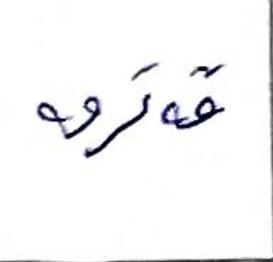 قەترمە